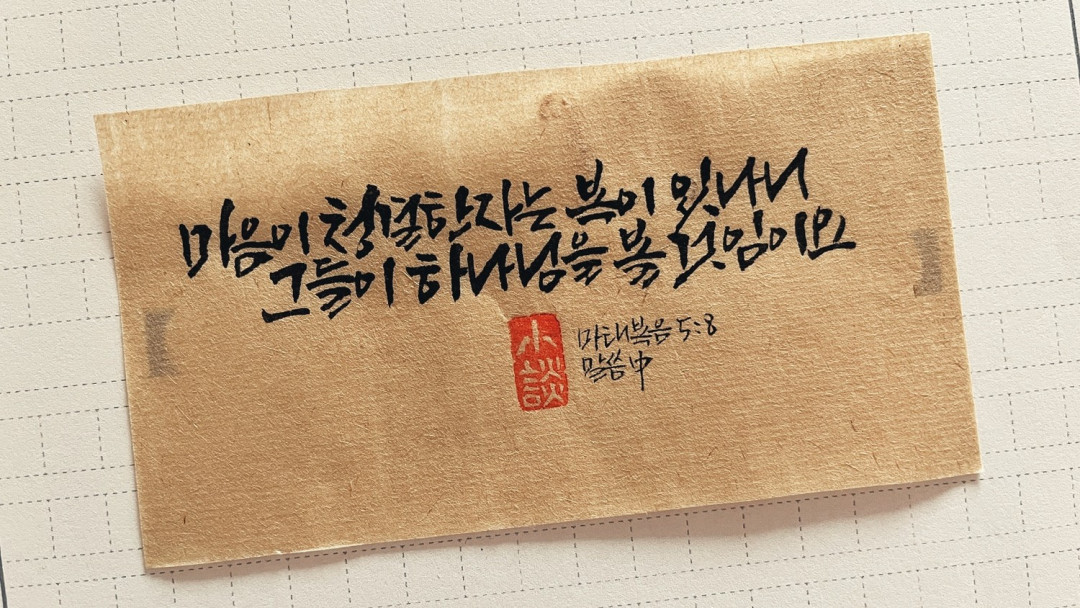 마음이 청결한자는 복이 있나니
그들이 하나님을 볼 것임이요
小談
마태복음 5:8
말씀 中